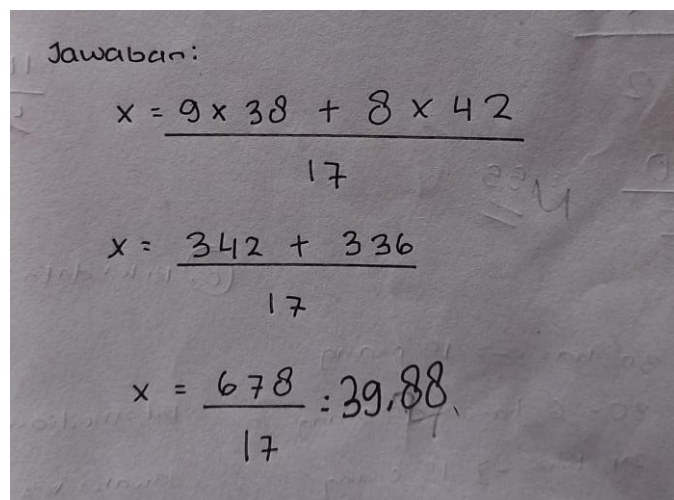 Jawaban:
x = 9 x 38 + 8 x 42
17
x = 342 + 336
17
x = 678 = 39,88
17